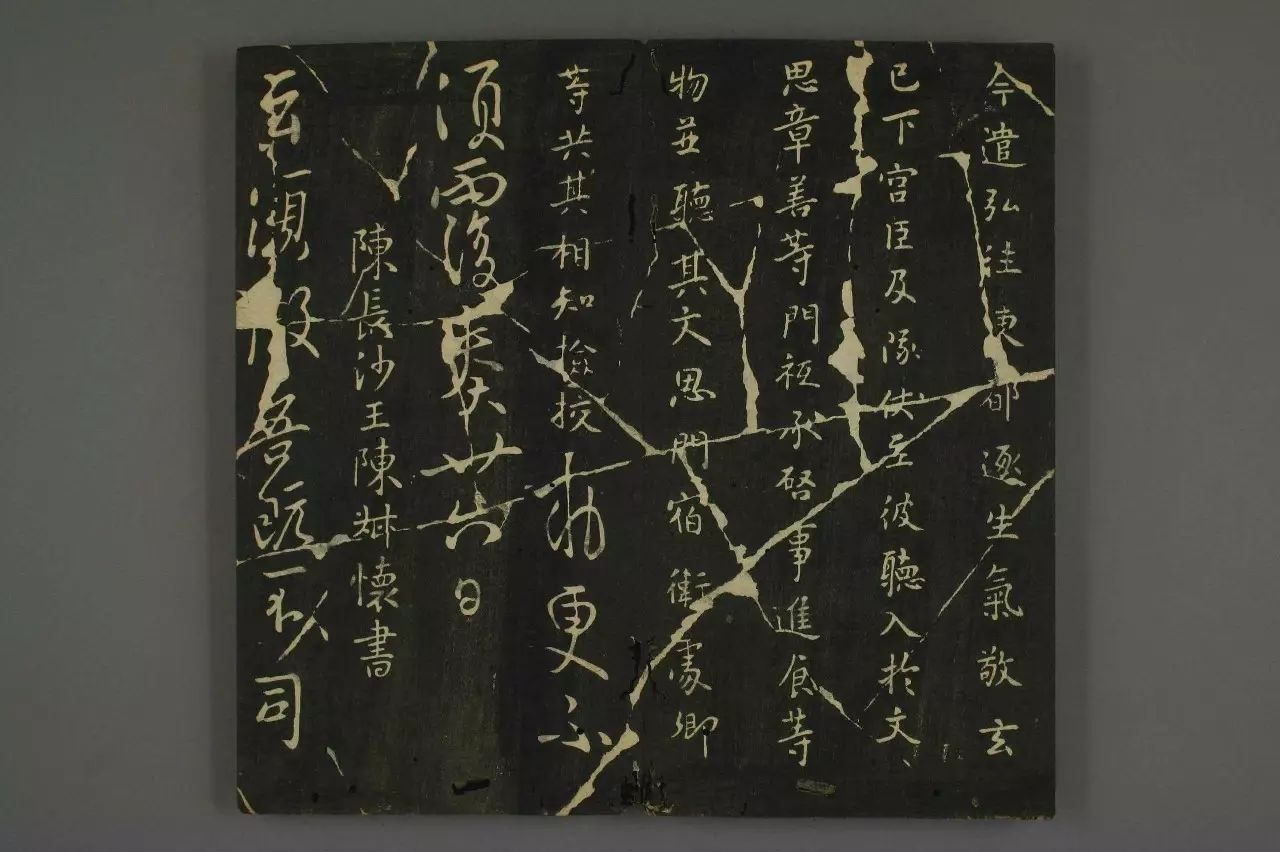 今遣弘往東都逐生氣敬玄
已下宮臣及隊仗至彼聽入於文
思章善等門祗承啓事進食等
物並聽其文思門宿衛處卿
等共其相知撿挍勅更不
須兩後來廿六日
陳長沙王陳叔懷書
吾既不 司